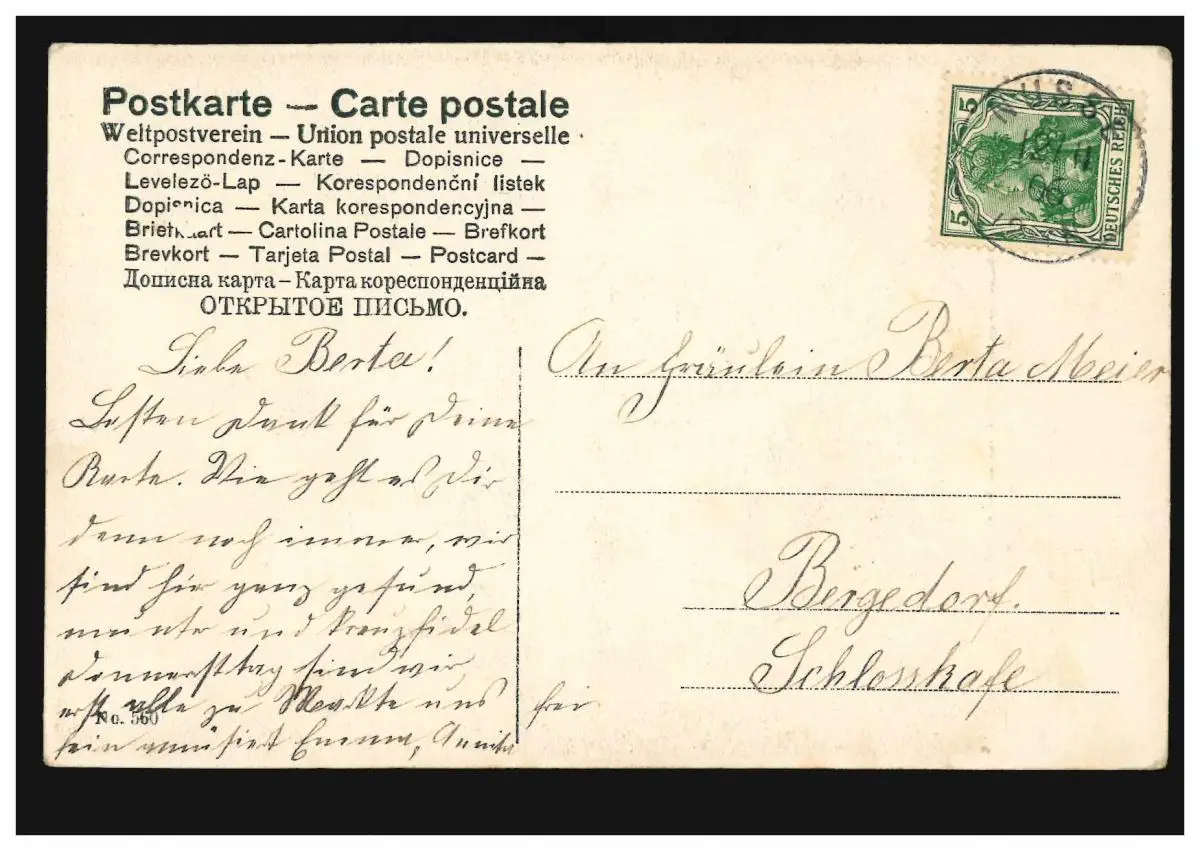 Postkarte — Carte postale
Weltpostverein — Union postale universelle
Correspondenz-Karte — Dopisnice —
Levelező-Lap — Korespondenční listek
Dopisnica — Karta korespondencyjna —
Briefkaart — Cartolina Postale — Brefkort
Brevkort — Tarjeta Postal — Postcard —
Дописна карта – Карта кореспонденційна
ОТКРЫТОЕ ПИСЬМО.
5
5
DEUTSCHES REICH
Liebe Berta!
Besten Dank für Deine
Karte. Wie geht es Dir
denn noch immer, wir
sind hir ganz gesund,
munter und kreuzfidel
Donnersttag sind wir
erst alle zu Markte uns
fein amüsiert Emma,
No. 560
An Fräulein Berta Meier
Bergedorf.
Schlosskafe
frei